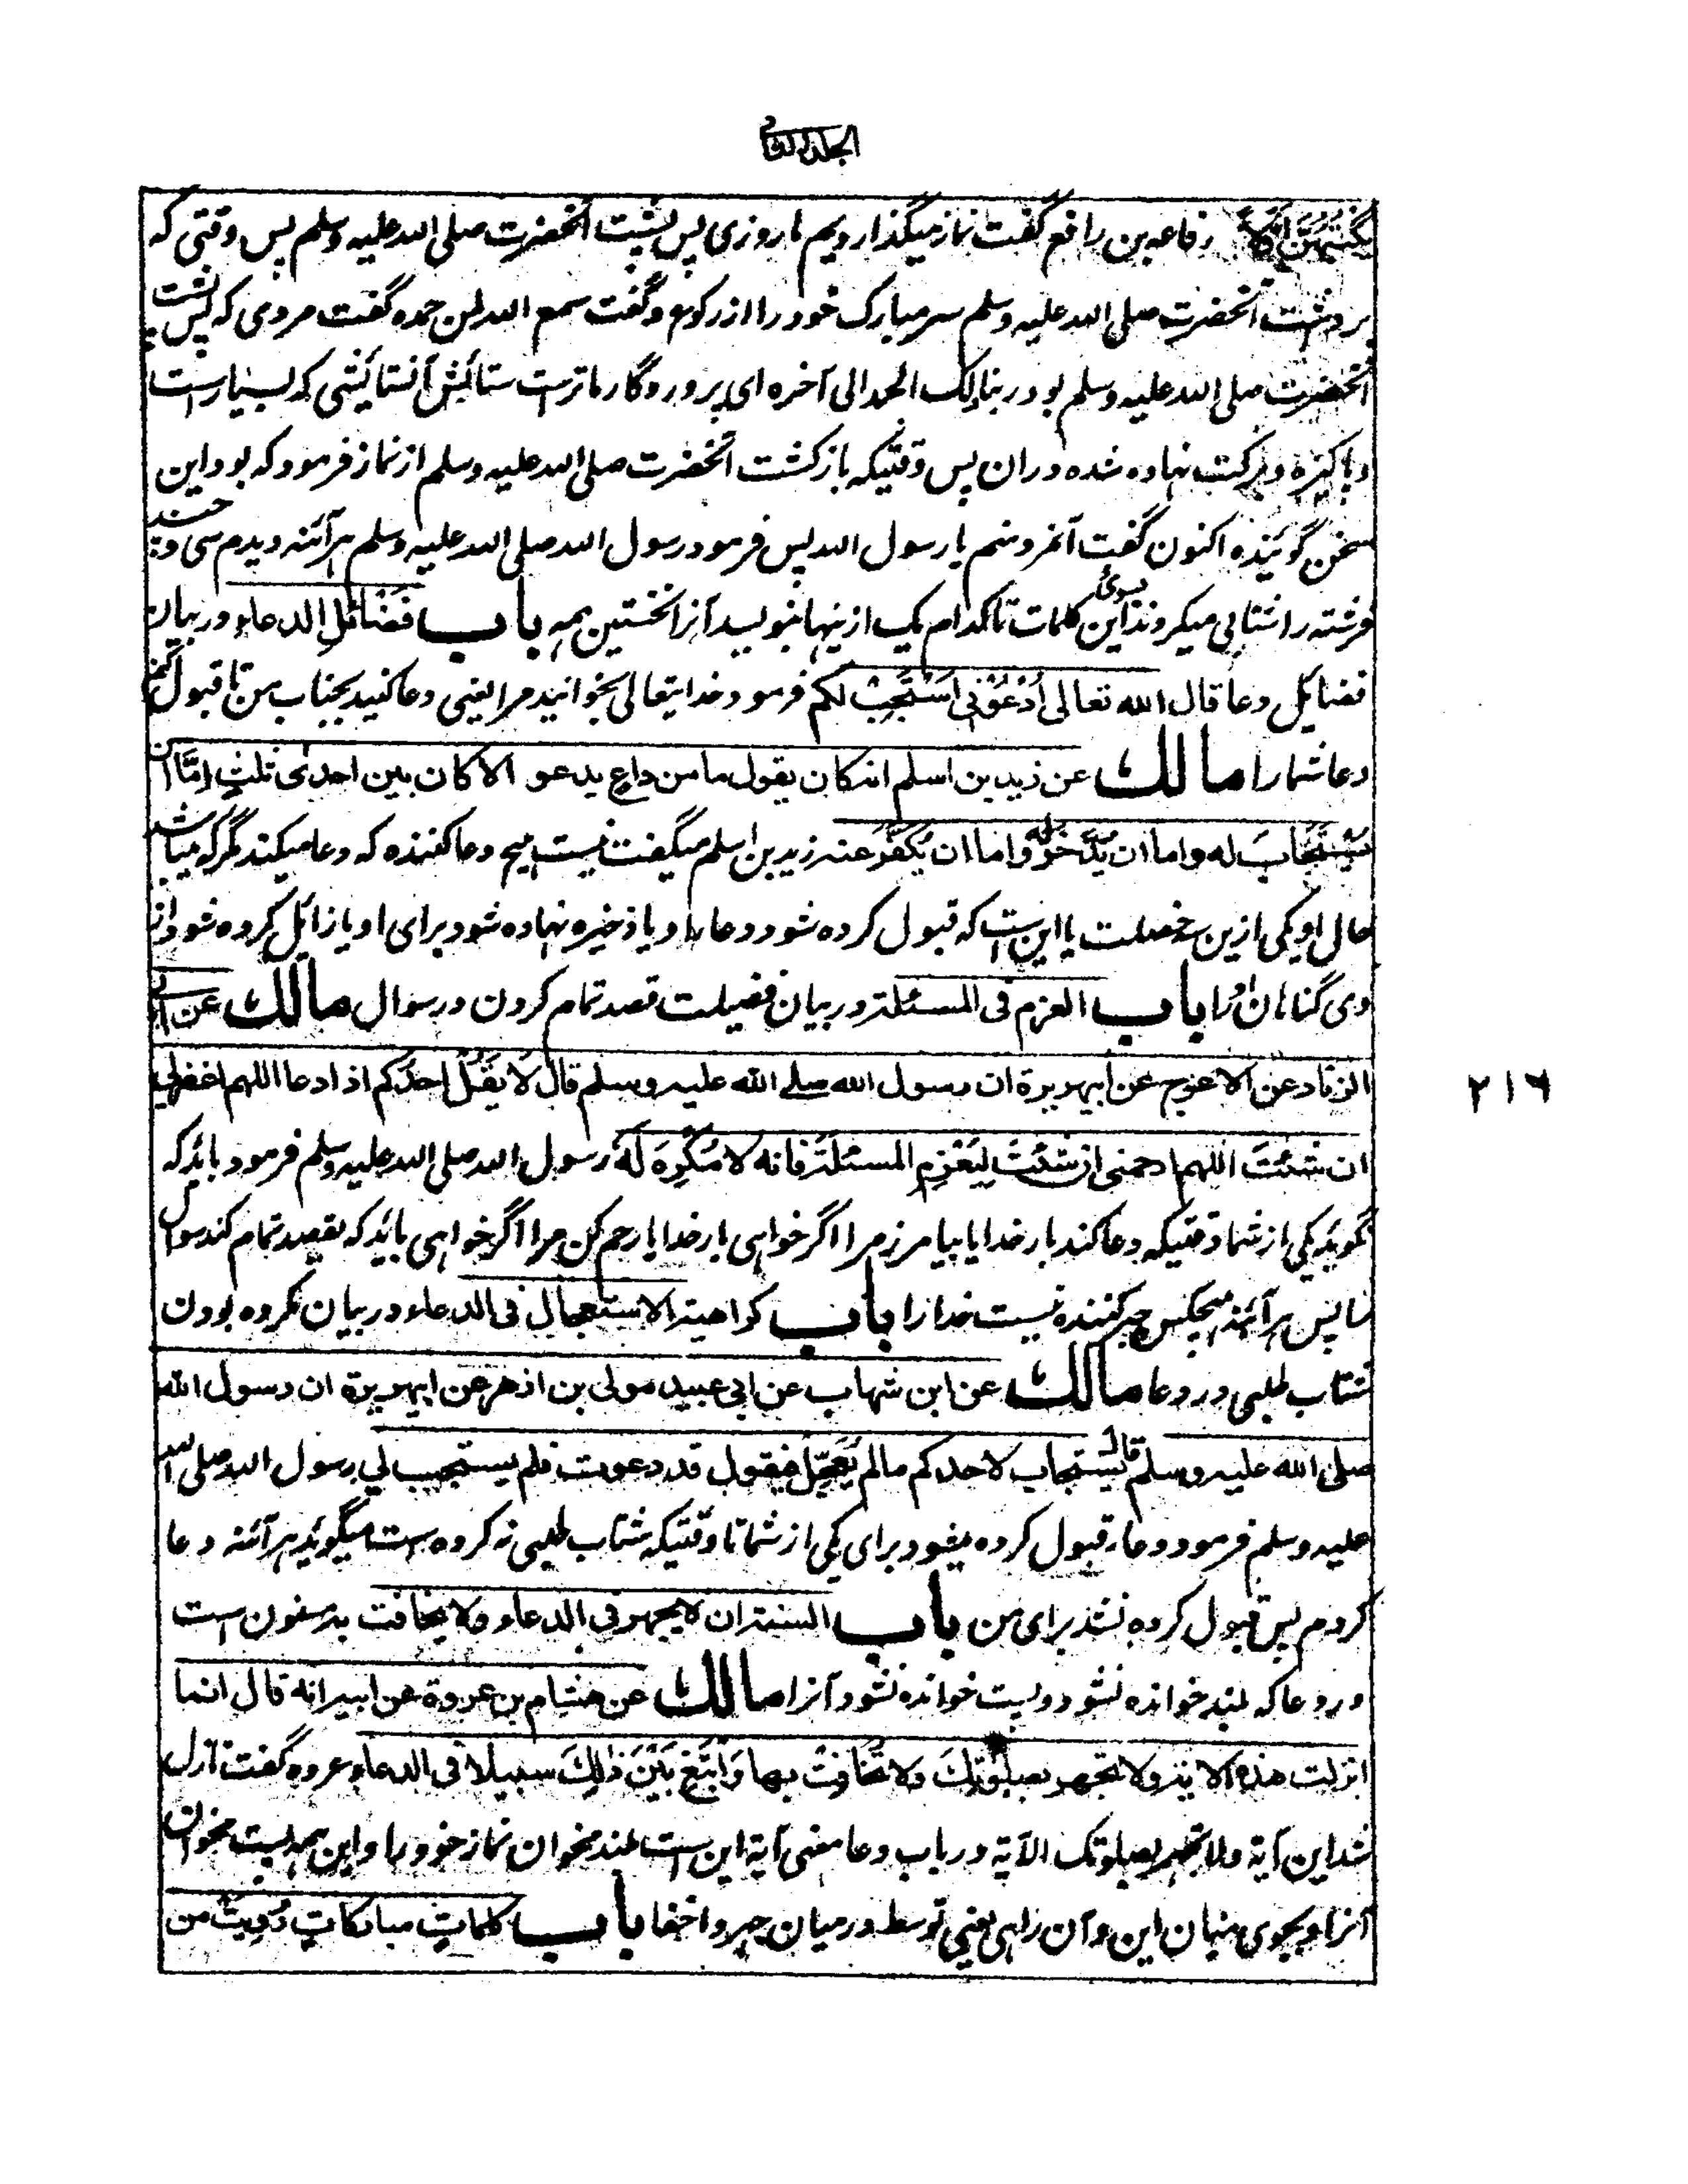 الجلد الثانی
یکتبهن اولا رفاعه بن رافع گفت نماز میگذاردیم ما روزی پس پشت آنحضرت صلی الله علیه وسلم پس وقتی که
برداشت آنحضرت صلی الله علیه وسلم سر مبارک خود را از رکوع و گفت سمع الله لمن حمده گفت مردی که پس پشت
آنحضرت صلی الله علیه وسلم بود ربنا لک الحمد الی آخره ای پروردگار ما تراست ستائش آنستائشی که بسیار است
و پاکیزه و برکت نهاده شده دران پس وقتیکه بازگشت آنحضرت صلی الله علیه وسلم از نماز فرمود که بود این
سخن گوینده اکنون گفت آنمرد منم یا رسول الله پس فرمود رسول الله صلی الله علیه وسلم هرآئنه دیدم سی و چند
فرشته را شتابی میکردند بسوی این کلمات تا کدام یک ازینها بنویسد آنرا نخستین همه باب فَضَائل الدعاء در بیان
فضائل دعا قال الله تعالی اُدْعُوْنِی اَسْتَجِبْ لکم فرمود خدایتعالی بخوانید مرا یعنی دعا کنید بجناب من تا قبول کنم
دعا شما را مالك عن زید بن اسلم انه کان یقول ما من داعٍ یدعو الا کان بین احدی ثلثٍ اِمَّا ان
یُسْتَجَابَ له واما ان یُدَّخَرَ له واما ان یُکَفَّرَ عنه زید بن اسلم میگفت نیست هیچ دعا کننده که دعا میکند مگر که میباشد
حال او یکی ازین سه خصلت یا این است که قبول کرده شود دعا او یا ذخیره نهاده شود برای او یا زائل کرده شود از
وی گناهان او را باب العزم فی المسئلة در بیان فضیلت قصد تمام کردن در سوال مالك عن ابی
الزناد عن الاعرج عن ابیهریرة ان رسول الله صلے الله علیه وسلم قال لا یَقُلْ احدُکم اذا دعا اللهم اغفرلی
ان شئتَ اللهم ارحمنی ان شئتَ لِیَعْزِمِ المسئلةَ فانه لا مُکْرِهَ لَهٗ رسول الله صلی الله علیه وسلم فرمود باید که
نگوید یکی از شما وقتیکه دعا کند بار خدایا بیامرز مرا اگر خواهی بار خدایا رحم کن مرا اگر خواهی باید که بقصد تمام کند سوال
را پس هرآئنه هیچکس جبر کننده نیست خدا را باب کراهیة الاستعجال فی الدعاء در بیان مکروه بودن
شتاب طلبی در دعا مالك عن ابن شهاب عن ابی عبید مولی بن ازهر عن ابیهریرة ان رسول الله
صلی الله علیه وسلم قال یُستجاب لاحدکم مالم یُعَجِّل فیقول قد دعوت فلم یستجیب لی رسول الله صلی الله
علیه وسلم فرمود دعا قبول کرده میشود برای یکی از شما تا وقتیکه شتاب طلبی نه کرده است میگوید هرآئنه دعا
کردم پس قبول کرده نشد برای من باب السنة ان لا یجهر فی الدعاء ولا یخافت به مسنون است
در دعا که بلند خوانده نشود و پست خوانده نشود آنرا مالك عن هشام بن عروة عن ابیه انه قال انما
انزلت هذه الآیة ولا تجهر بصلوٰتِکَ ولا تُخَافِتْ بها وَابْتَغِ بَیْنَ ذٰلِکَ سبیلا فی الدعاء عروه گفت نازل
شد این آیة ولا تجهر بصلوتک الآیة در باب دعا معنی آیة این است بلند مخوان نماز خود را و این همه پست مخوان
آنرا و بجوی میان این و آن راهی یعنی توسط در میان جهر و اخفا باب کلماتٍ مبارکاتٍ رُوِیَتْ من
٢١٦